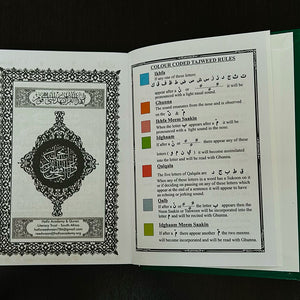 Hafiz Academy & Quran
Literacy Trust - South Africa
COLOUR CODED TAJWEED RULES
Ikhfa
If any one of these letters
ت ث ج د ذ ز س ش ص ض ط ظ ف ق ك
appear after a ن or
pronounced with a light nasal sound.
Ghunna
The sound emanates from the nose and is observed
on the نّ & مّ
Ikhfa Meem Saakin
When the letter ب appears after م it will be
pronounced with a light sound in the nose.
Idghaam
If after ن or there appear any of these
letters ي و م ن it will become assimilated
into the letter and will be read with Ghunna.
Qalqala
The five letters of Qalqala are ق ط ب ج د
When any of these letters in a word has a Sukoon on it
or if deciding on pausing on any of these letters which
appear at the end of a sentence it will appear to have
an echoing or jerking sound.
Qalb
If after ن or ب appears then the
Noon Saakin or Tanween will be incorporated into the
letter م and will be recited with Ghunna.
Idghaam Meem Saakin
If after م there appear another م the two meems
will become incorporated and will be read with Ghunna.